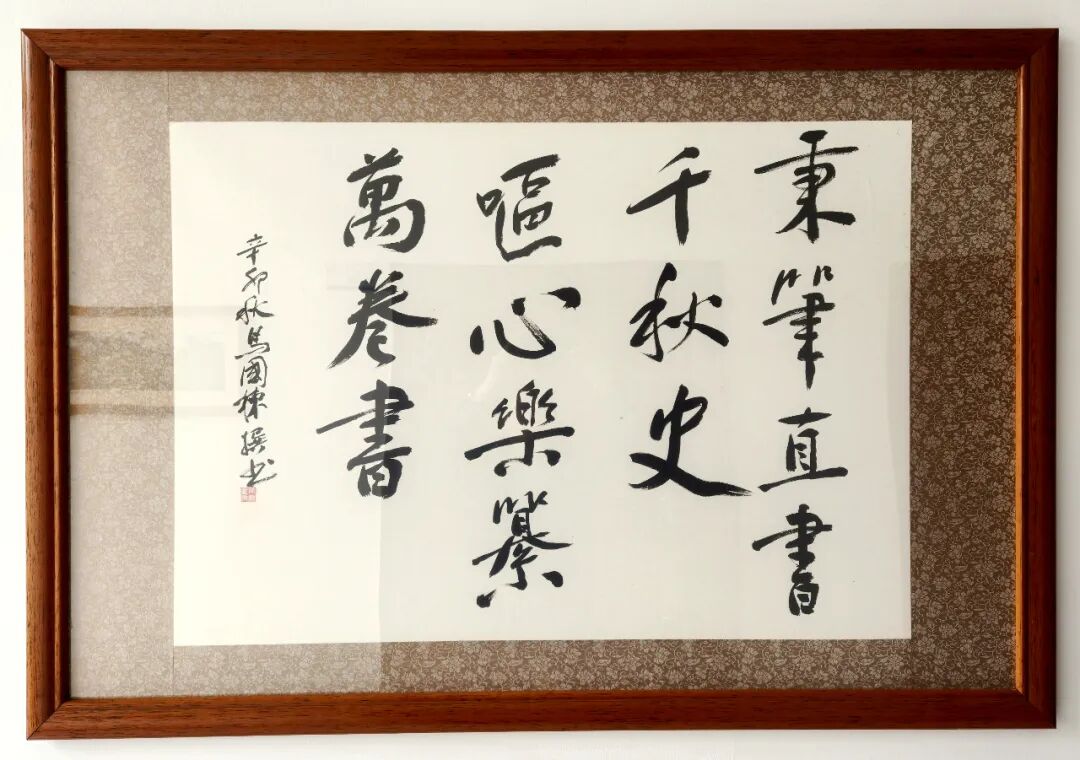 秉筆直書
千秋史
嘔心樂纂
萬卷書
辛卯秋馬國棟撰书